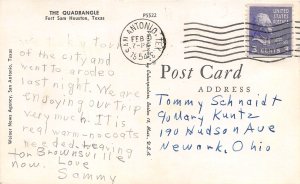 THE QUADRANGLE
Fort Sam Houston, Texas
P5322
SAN ANTONIO, TEX.
FEB
7-PM
1954
3 CENTS 3
Post Card
ADDRESS
tour
of the city and
went to rodeo
last night. We are
enjoying our trip
very much. It is
real warm-no coats
needed. Leaving
for Brownsville
now. Love
Sammy
Tommy Schnaidt
% Mary Kuntz
190 Hudson Ave
Newark, Ohio
Weiner News Agency, San Antonio, Texas